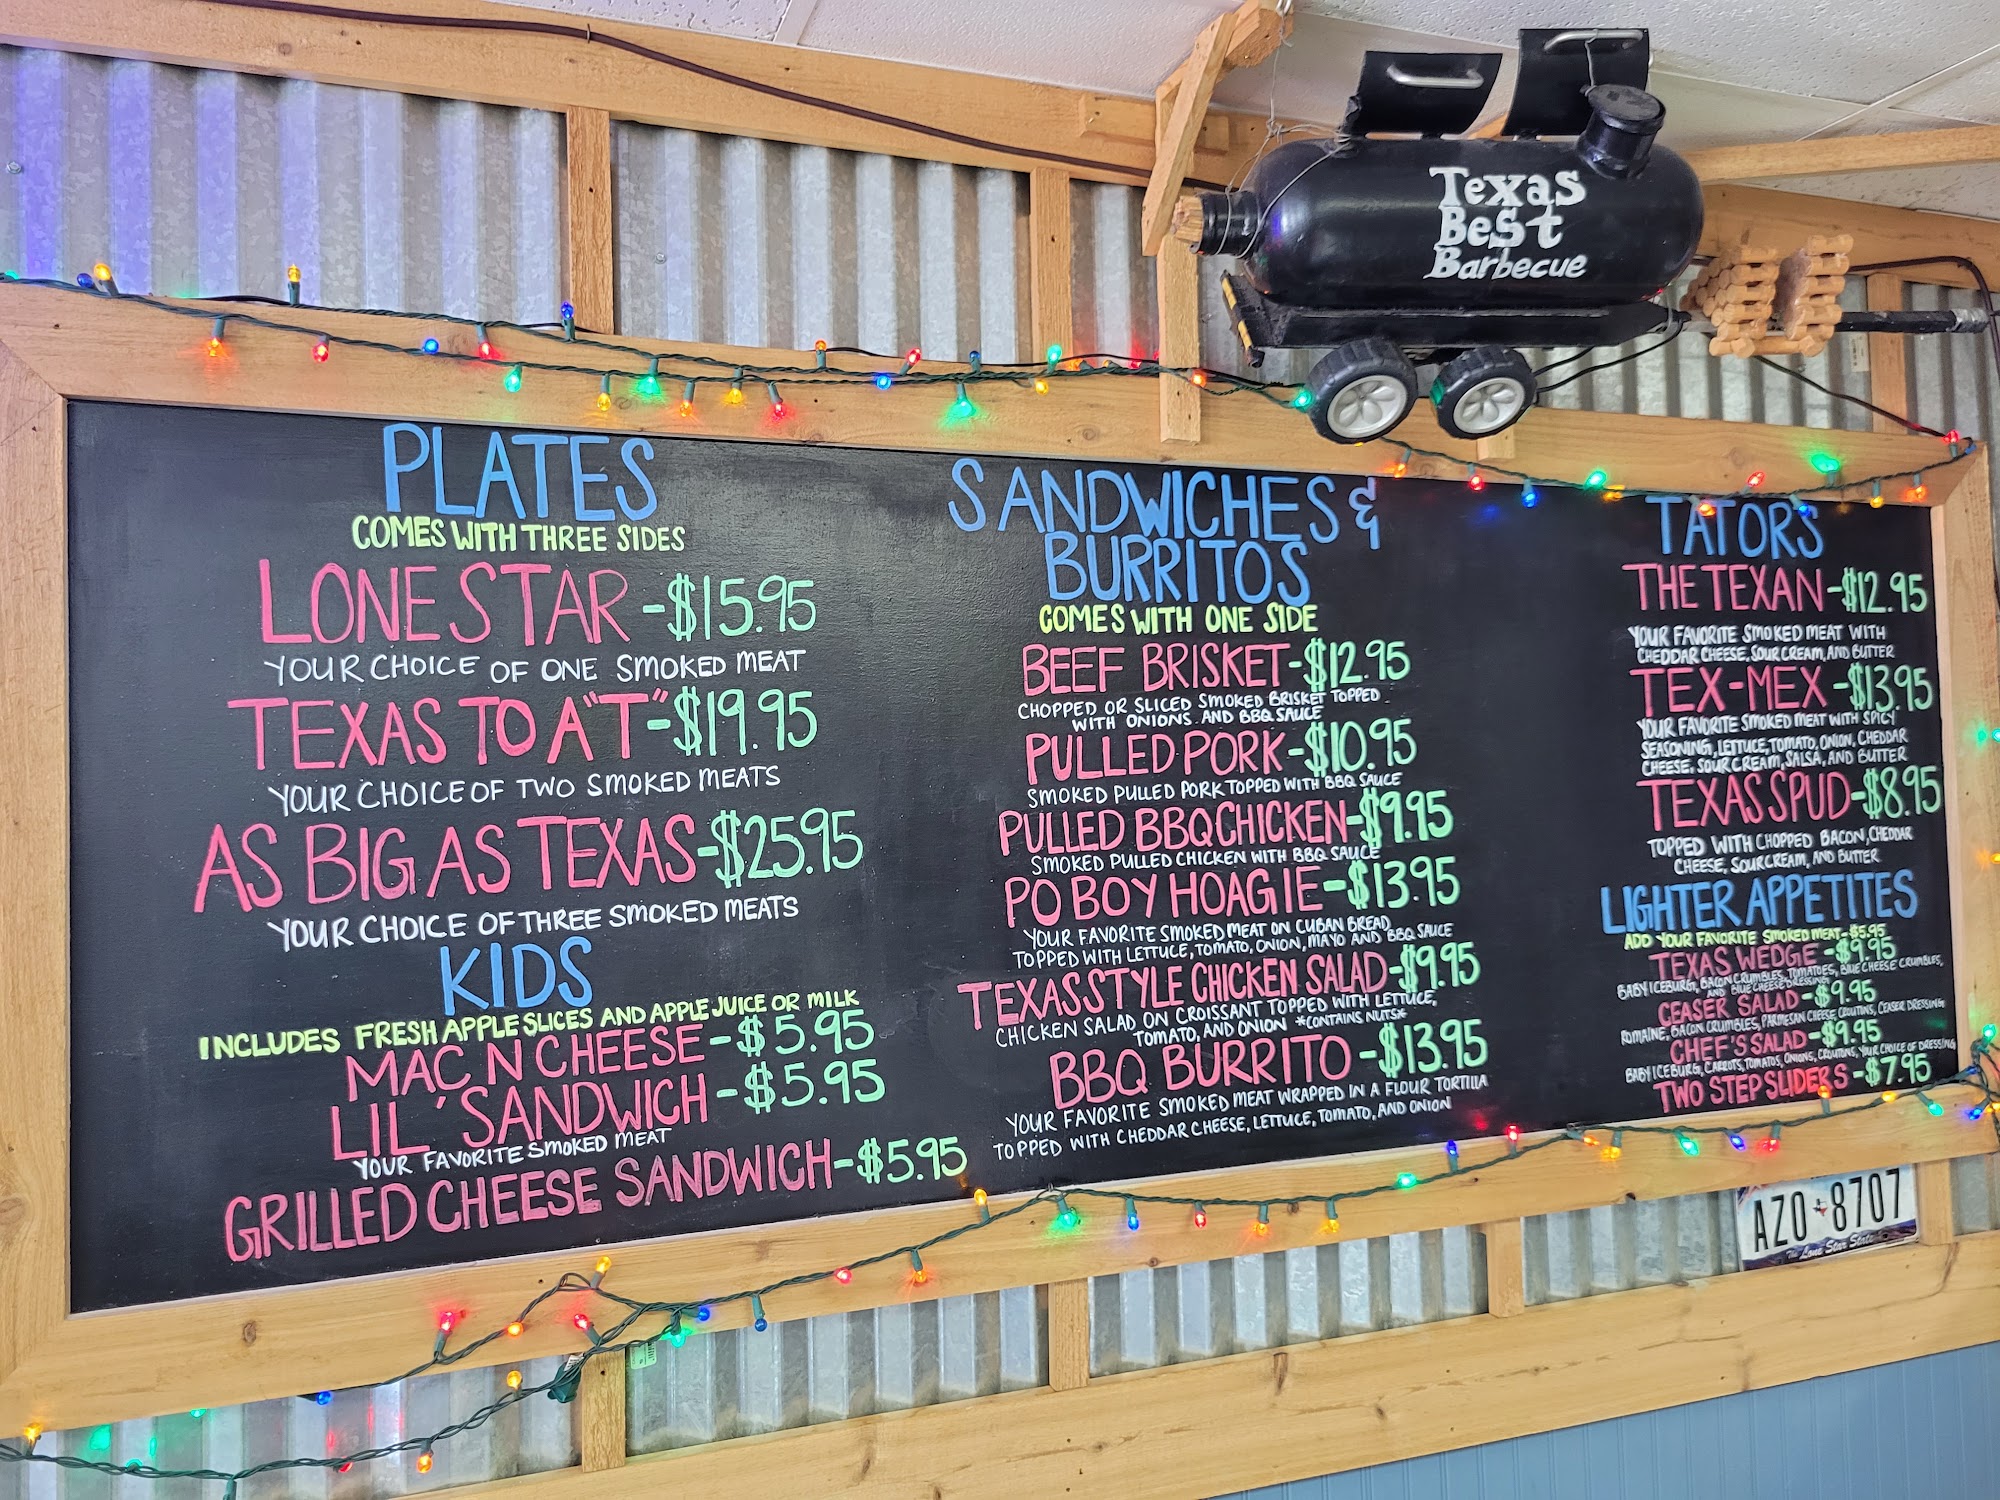 Texas
Best
Barbecue
PLATES
COMES WITH THREE SIDES
LONE STAR -$15.95
YOUR CHOICE OF ONE SMOKED MEAT
TEXAS TO A "T"-$19.95
YOUR CHOICE OF TWO SMOKED MEATS
AS BIG AS TEXAS-$25.95
YOUR CHOICE OF THREE SMOKED MEATS
KIDS
INCLUDES FRESH APPLE SLICES AND APPLE JUICE OR MILK
MAC N CHEESE-$5.95
LIL' SANDWICH-$5.95
YOUR FAVORITE SMOKED MEAT
GRILLED CHEESE SANDWICH-$5.95
SANDWICHES &
BURRITOS
COMES WITH ONE SIDE
BEEF BRISKET-$12.95
CHOPPED OR SLICED SMOKED BRISKET TOPPED
WITH ONIONS AND BBQ SAUCE
PULLED PORK-$10.95
SMOKED PULLED PORK TOPPED WITH BBQ SAUCE
PULLED BBQ CHICKEN-$9.95
SMOKED PULLED CHICKEN WITH BBQ SAUCE
PO BOY HOAGIE-$13.95
YOUR FAVORITE SMOKED MEAT ON CUBAN BREAD,
TOPPED WITH LETTUCE, TOMATO, ONION, MAYO AND BBQ SAUCE
TEXAS STYLE CHICKEN SALAD-$9.95
CHICKEN SALAD ON CROISSANT TOPPED WITH LETTUCE,
TOMATO, AND ONION *CONTAINS NUTS*
BBQ BURRITO-$13.95
YOUR FAVORITE SMOKED MEAT WRAPPED IN A FLOUR TORTILLA
TOPPED WITH CHEDDAR CHEESE, LETTUCE, TOMATO, AND ONION
TATORS
THE TEXAN-$12.95
YOUR FAVORITE SMOKED MEAT WITH
CHEDDAR CHEESE, SOUR CREAM, AND BUTTER
TEX-MEX-$13.95
YOUR FAVORITE SMOKED MEAT WITH SPICY
SEASONING, LETTUCE, TOMATO, ONION, CHEDDAR
CHEESE, SOUR CREAM, SALSA, AND BUTTER
TEXAS SPUD-$8.95
TOPPED WITH CHOPPED BACON, CHEDDAR
CHEESE, SOUR CREAM, AND BUTTER
LIGHTER APPETITES
ADD YOUR FAVORITE SMOKED MEAT-$5.95
TEXAS WEDGE-$9.95
BABY ICEBURG, BACON CRUMBLES, TOMATOES, BLUE CHEESE CRUMBLES,
AND BLUE CHEESE DRESSING
CEASER SALAD-$9.95
ROMAINE, BACON CRUMBLES, PARMESAN CHEESE, CROUTINS, CEASER DRESSING
CHEF'S SALAD-$9.95
BABY ICEBURG, CARROTS, TOMATOS, ONIONS, CROUTONS, YOUR CHOICE OF DRESSING
TWO STEP SLIDERS-$7.95
AZ0 8707
The Lone Star State